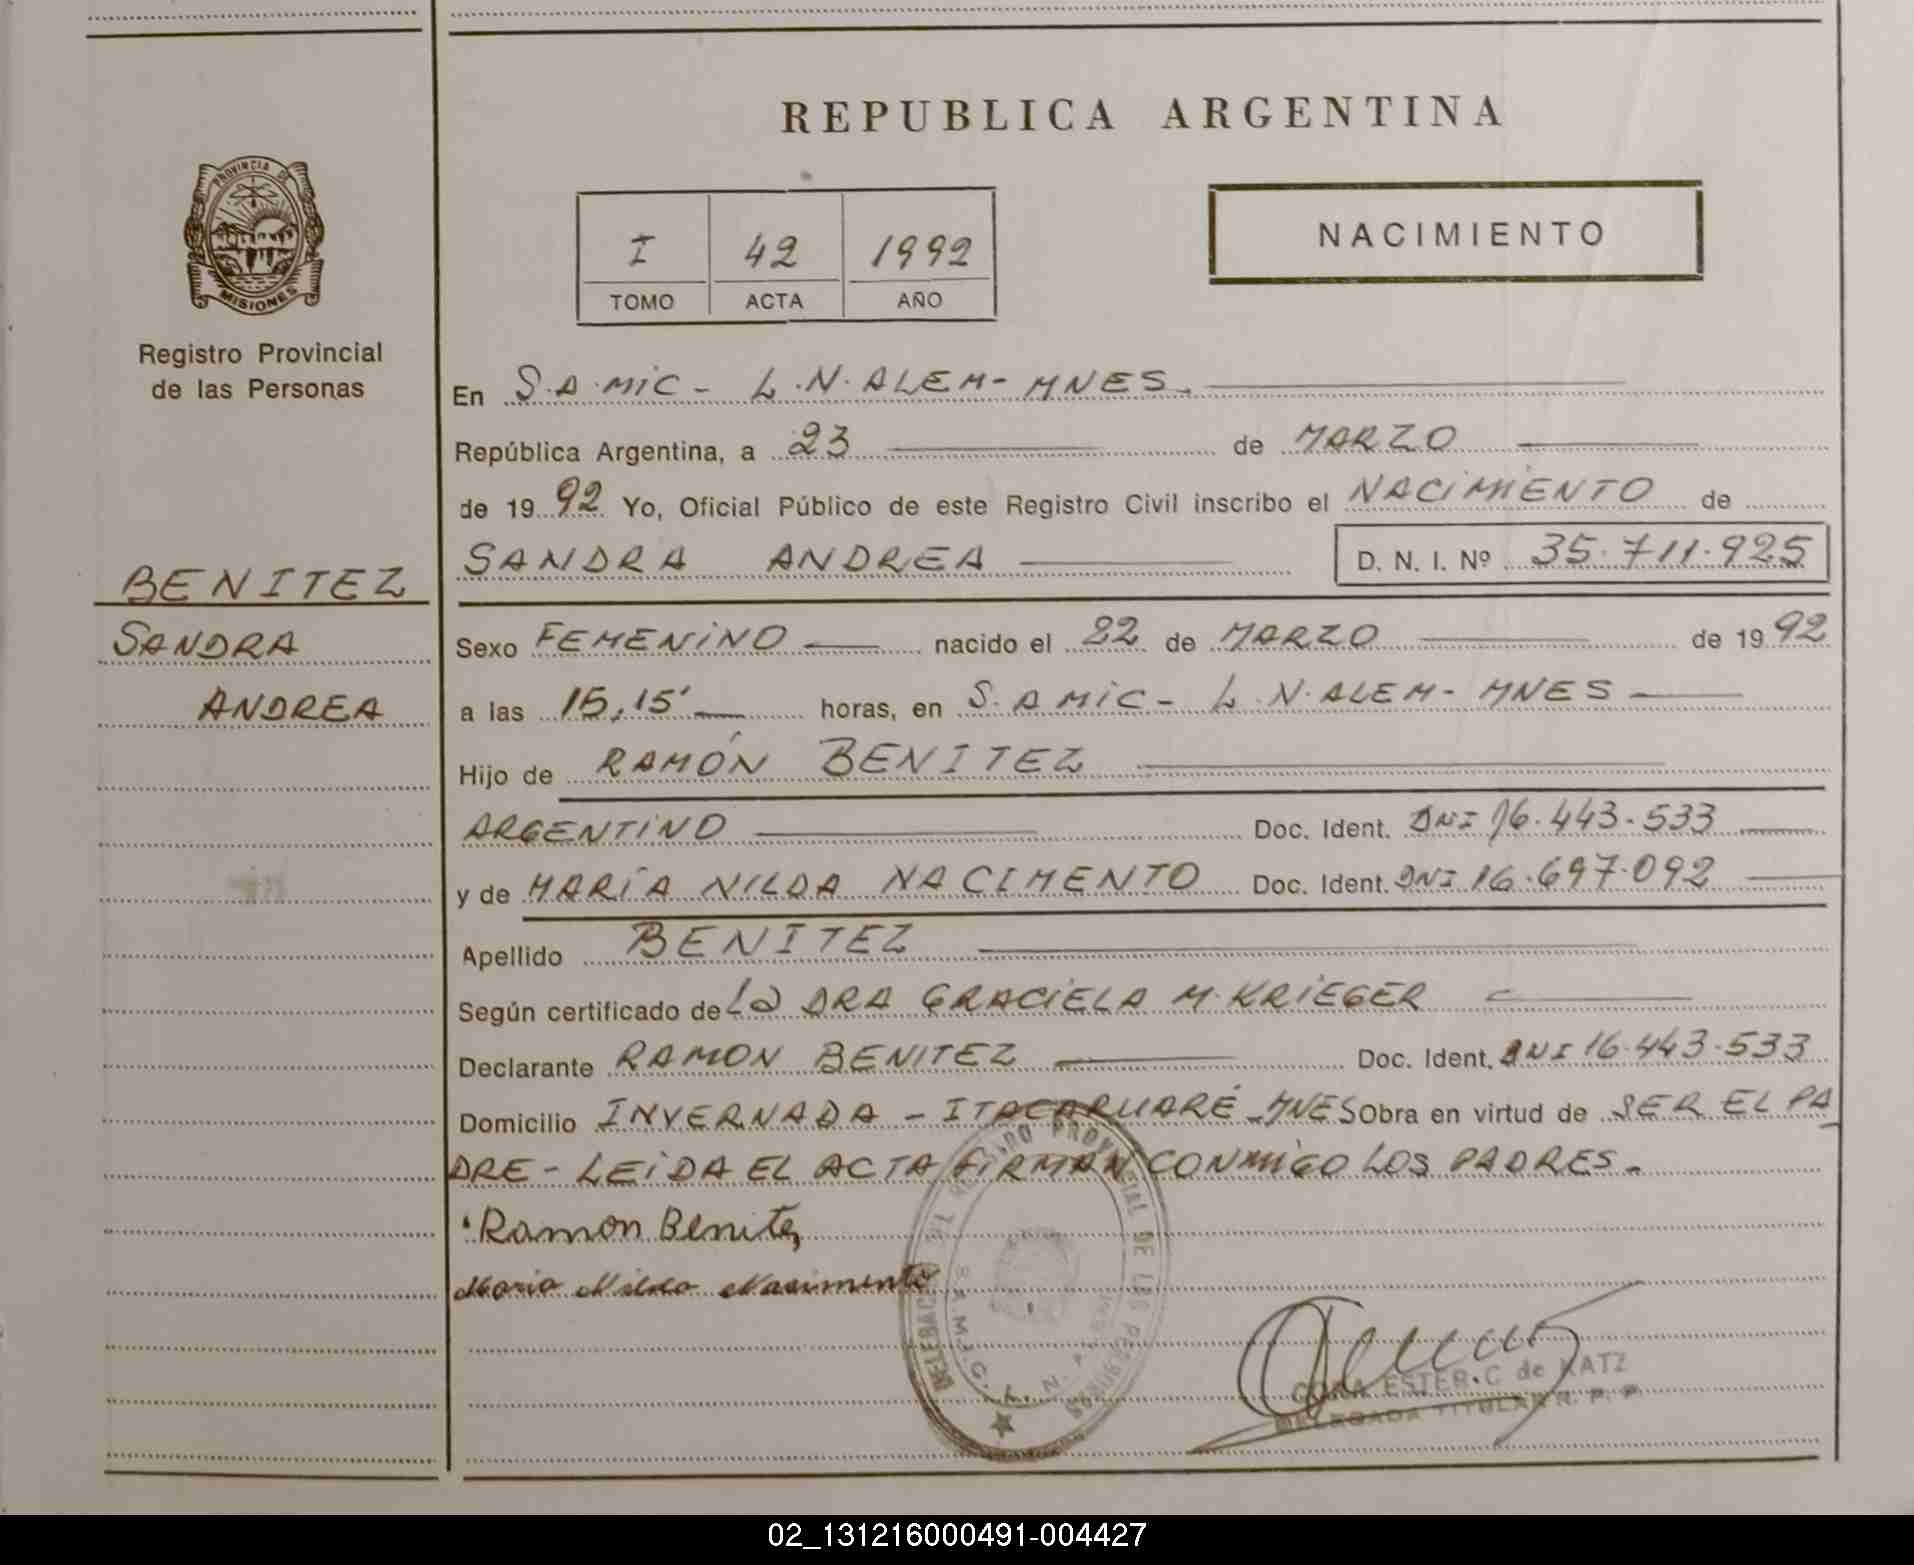 REPUBLICA ARGENTINA
PROVINCIA DE
MISIONES
Registro Provincial
de las Personas
I 42 1992
TOMO ACTA AÑO
NACIMIENTO
En S.A.MIC - L.N.ALEM - MNES.
República Argentina, a 23 de MARZO
de 1992 Yo, Oficial Público de este Registro Civil inscribo el NACIMIENTO de
SANDRA ANDREA D. N. I. Nº 35.711.925
BENITEZ
SANDRA
ANDREA
Sexo FEMENINO nacido el 22 de MARZO de 1992
a las 15,15' horas, en S.A MIC - L.N.ALEM - MNES
Hijo de RAMÓN BENITEZ
ARGENTINO Doc. Ident. DNI 16.443.533
y de MARÍA NILDA NACIMENTO Doc. Ident. DNI 16.697.092
Apellido BENITEZ
Según certificado de La DRA GRACIELA M. KRIEGER
Declarante RAMON BENITEZ Doc. Ident. DNI 16.443.533
Domicilio INVERNADA - ITACARUARÉ - MNES Obra en virtud de SER EL PA
DRE - LEIDA EL ACTA FIRMAN CONMIGO LOS PADRES.
Ramon Benitez
Maria Nilda Nacimento
DELEGACION DEL REGISTRO PROVINCIAL DE LAS PERSONAS
S.A.M.I.C. L. N. ALEM
CORA ESTER C de KATZ
DELEGADA TITULAR R. P. P.
02_131216000491-004427